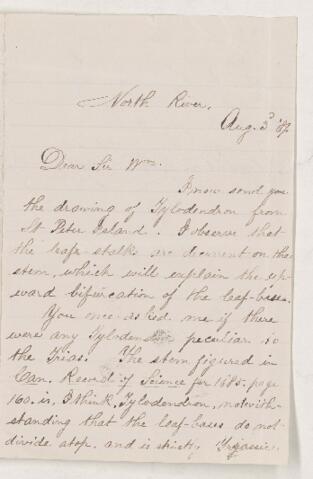 North River,
Aug. 3d '87.
Dear Sir Wm.
I now send you
the drawing of Tylodendron from
St Peter Island. I observe that
the leafe-stalks are decurrent on the
stem, which will explain the up
ward bifurcation of the leaf-bases.
You once asked me if there
were any Tylodendron peculiar to
the Trias. The stem figured in
Can. Record of Science for 1885. page
160. is, I think, Tylodendron, notwith-
standing that the leaf-bases do not
divide atop. and is strictly Triassic.